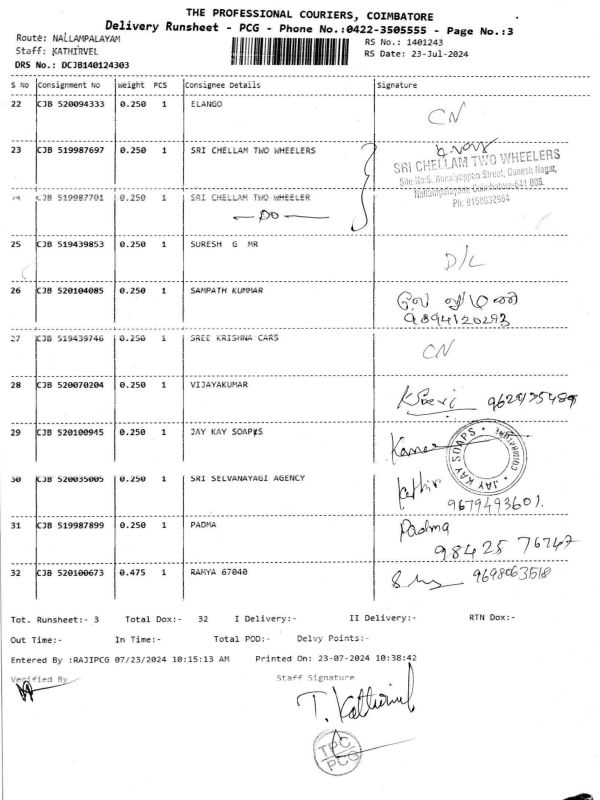 THE PROFESSIONAL COURIERS, COIMBATORE
Delivery Runsheet - PCG - Phone No.:0422-3505555 - Page No.:3
Route: NALLAMPALAYAM
RS No.: 1401243
Staff: KATHIRVEL
RS Date: 23-Jul-2024
DRS No.: DCJB140124303
S No Consignment No Weight PCS Consignee Details Signature
22 CJB 520094333 0.250 1 ELANGO CN
23 CJB 519987697 0.250 1 SRI CHELLAM TWO WHEELERS
SRI CHELLAM TWO WHEELERS
Site No:5, Street, Ganesh Nagar,
Nallampalayam, Coimbatore-641 006.
Ph: 8150032964
CJB 519987701 0.250 1 SRI CHELLAM TWO WHEELER
- DO -
25 CJB 519439853 0.250 1 SURESH G MR D/L
26 CJB 520104085 0.250 1 SAMPATH KUMMAR
9894120293
27 CJB 519439746 0.250 1 SREE KRISHNA CARS CN
28 CJB 520070204 0.250 1 VIJAYAKUMAR
29 CJB 520100945 0.250 1 JAY KAY SOAPS
JAY KAY SOAPS * COIMBATORE *
30 CJB 520035005 0.250 1 SRI SELVANAYAGI AGENCY Kathir
9679493601.
31 CJB 519987899 0.250 1 PADMA Padma
98425 76747
32 CJB 520100673 0.475 1 RAMYA 67040 9698063518
Tot. Runsheet:- 3 Total Dox:- 32 I Delivery:- II Delivery:- RTN Dox:-
Out Time:- In Time:- Total POD:- Delvy Points:-
Entered By :RAJIPCG 07/23/2024 10:15:13 AM Printed On: 23-07-2024 10:38:42
Verified By Staff Signature
T. Kathirvel
TPC
PCG